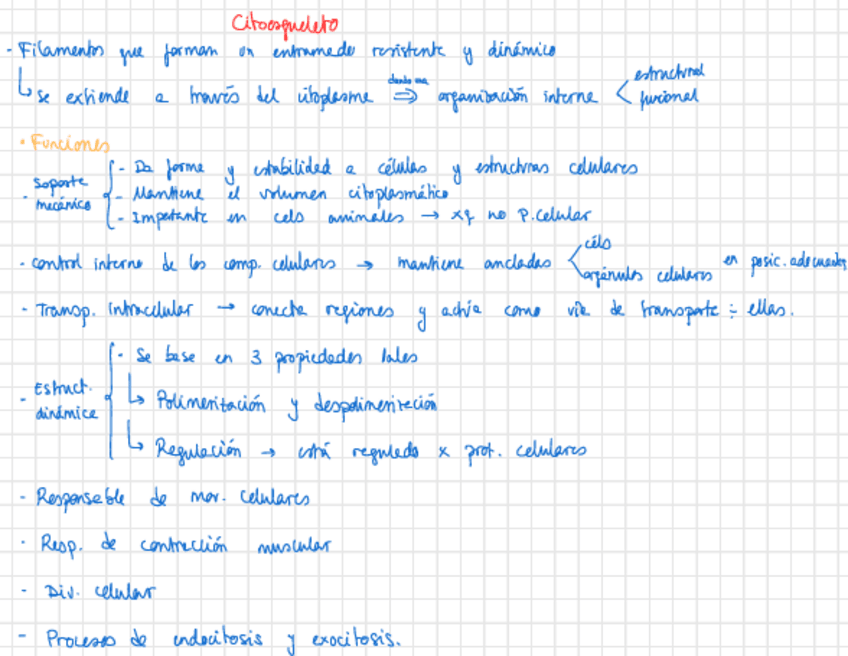 Citoesqueleto
- Filamentos que forman un entramado resistente y dinámico
↳ se extiende a través del citoplasma ⇒ organización interna < estructural
funcional
• Funciones
- Soporte mecánico
- Da forma y estabilidad a células y estructuras celulares
- Mantiene el volumen citoplasmático
- Importante en cels animales → xq no P. celular
- control interno de los comp. celulares → mantiene ancladas < céls
orgánulos celulares
en posic. adecuadas
- Transp. intracelular → conecta regiones y actúa como vía de transporte ÷ ellas.
- Estruct. dinámica
- Se basa en 3 propiedades
↳ Polimerización y despolimerización
↳ Regulación → está regulado x prot. celulares
- Responsable de mov. celulares
- Resp. de contracción muscular
- Div. celular
- Procesos de endocitosis y exocitosis.